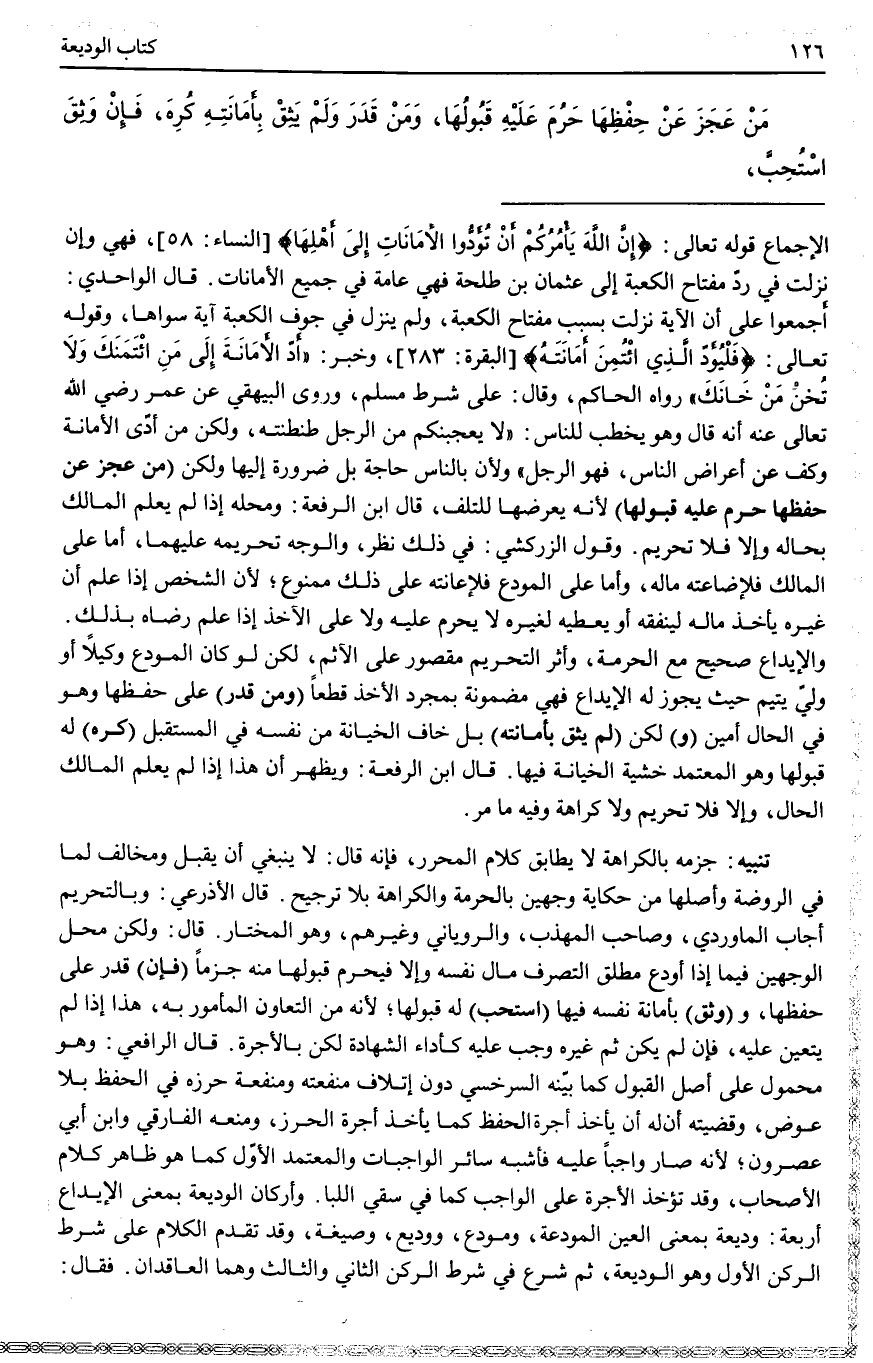 ١٢٦ كتاب الوديعة
مَنْ عَجَزَ عَنْ حِفْظِهَا حَرُمَ عَلَيْهِ قَبُولُهَا، وَمَنْ قَدَرَ وَلَمْ يَثِقْ بِأَمَانَتِهِ كُرِهَ، فَإِنْ وَثِقَ
اسْتُحِبَّ،
الإجماع قوله تعالى: ﴿إِنَّ اللَّهَ يَأْمُرُكُمْ أَنْ تُؤَدُّوا الأَمَانَاتِ إِلَىَ أَهْلِهَا﴾ [النساء: ٥٨]، فهي وإن
نزلت في ردّ مفتاح الكعبة إلى عثمان بن طلحة فهي عامة في جميع الأمانات. قـال الواحـدي:
أجمعوا على أن الآية نزلت بسبب مفتاح الكعبة، ولم ينزل في جوف الكعبة آية سواهـا، وقولـه
تعـالى: ﴿فَلْيُؤَدِّ الَّـذِي ائْتُمِنَ أَمَانَتَـهُ﴾ [البقرة: ٢٨٣]، وخبـر: «أَدِّ الأَمَانَـةَ إِلَى مَنِ ائْتَمَنَكَ وَلَا
تَخُنْ مَنْ خَـانَكَ» رواه الحـاكم، وقال: على شـرط مسلم، وروى البيهقي عن عمـر رضي الله
تعالى عنه أنه قال وهو يخطب للناس: «لا يعجبنكم من الرجل طنطنتـه، ولكن من أدّى الأمانـة
وكف عن أعراض الناس، فهو الرجل» ولأن بالناس حاجة بل ضرورة إليها ولكن (من عجز عن
حفظها حـرم عليه قبـولها) لأنـه يعرضهـا للتلف، قال ابن الـرفعة: ومحله إذا لم يعلم المـالك
بحـاله وإلا فـلا تحريـم. وقـول الزركشي: في ذلـك نظر، والـوجه تحـريمه عليهمـا، أما على
المالك فلإضاعته ماله، وأما على المودع فلإعانته على ذلـك ممنوع؛ لأن الشخص إذا علم أن
غيـره يأخـذ مالـه لينفقه أو يعـطيه لغيـره لا يحرم عليـه ولا على الآخذ إذا علم رضـاه بـذلـك.
والإيداع صحيح مع الحرمـة، وأثر التحـريم مقصور على الآثم، لكن لـو كان المـودع وكيلاً أو
وليّ يتيم حيث يجوز له الإيداع فهي مضمونة بمجرد الأخذ قطعاً (ومن قدر) على حفـظها وهـو
في الحال أمين (و) لكن (لم يثق بأمـانته) بـل خاف الخيـانة من نفسـه في المستقبل (كـره) له
قبولها وهو المعتمد خشية الخيانـة فيها. قـال ابن الرفعـة: ويظهـر أن هذا إذا لم يعلم المـالك
الحال، وإلا فلا تحريم ولا كراهة وفيه ما مر.
تنبيه: جزمه بالكراهة لا يطابق كلام المحرر، فإنه قال: لا ينبغي أن يقبـل ومخالف لمـا
في الروضة وأصلها من حكاية وجهين بالحرمة والكراهة بلا ترجيح. قال الأذرعي: وبـالتحريم
أجاب الماوردي، وصاحب المهذب، والـروياني وغيـرهم، وهو المختـار. قال: ولكن محـل
الوجهين فيما إذا أودع مطلق التصرف مـال نفسه وإلا فيحـرم قبولهـا منه جـزماً (فـإن) قدر على
حفظها، و (وثق) بأمانة نفسه فيها (استحب) له قبولها؛ لأنه من التعاون المأمور بـه، هذا إذا لم
يتعين عليه، فإن لم يكن ثم غيره وجب عليه كـأداء الشهادة لكن بـالأجرة. قـال الرافعي: وهـو
محمول على أصل القبول كما بيّنه السرخسي دون إتـلاف منفعته ومنفعـة حرزه في الحفظ بـلا
عـوض، وقضيته أن له أن يأخذ أجرة الحفظ كمـا يأخـذ أجرة الحـرز، ومنعـه الفـارقي وابن أبي
عصـرون؛ لأنه صـار واجباً عليـه فأشبـه سائـر الواجبـات والمعتمد الأوّل كمـا هو ظـاهر كـلام
الأصحاب، وقد تؤخذ الأجرة على الواجب كما في سقي اللبا. وأركان الوديعة بمعنى الإيـداع
أربعة: وديعة بمعنى العين المودعة، ومـودع، ووديع، وصيغـة، وقد تقـدم الكلام على شـرط
الركن الأول وهو الـوديعة، ثم شـرع في شرط الـركن الثاني والثـالث وهما العـاقدان. فقـال: